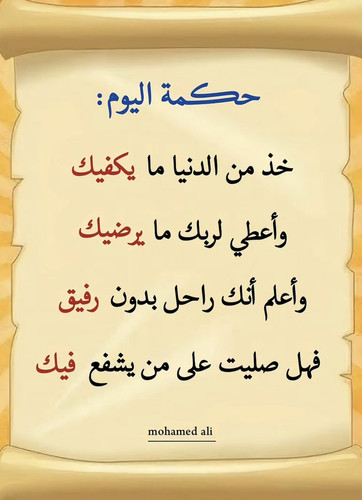 حكمة اليوم:
خذ من الدنيا ما يكفيك
وأعطي لربك ما يرضيك
وأعلم أنك راحل بدون رفيق
فهل صليت على من يشفع فيك
mohamed ali